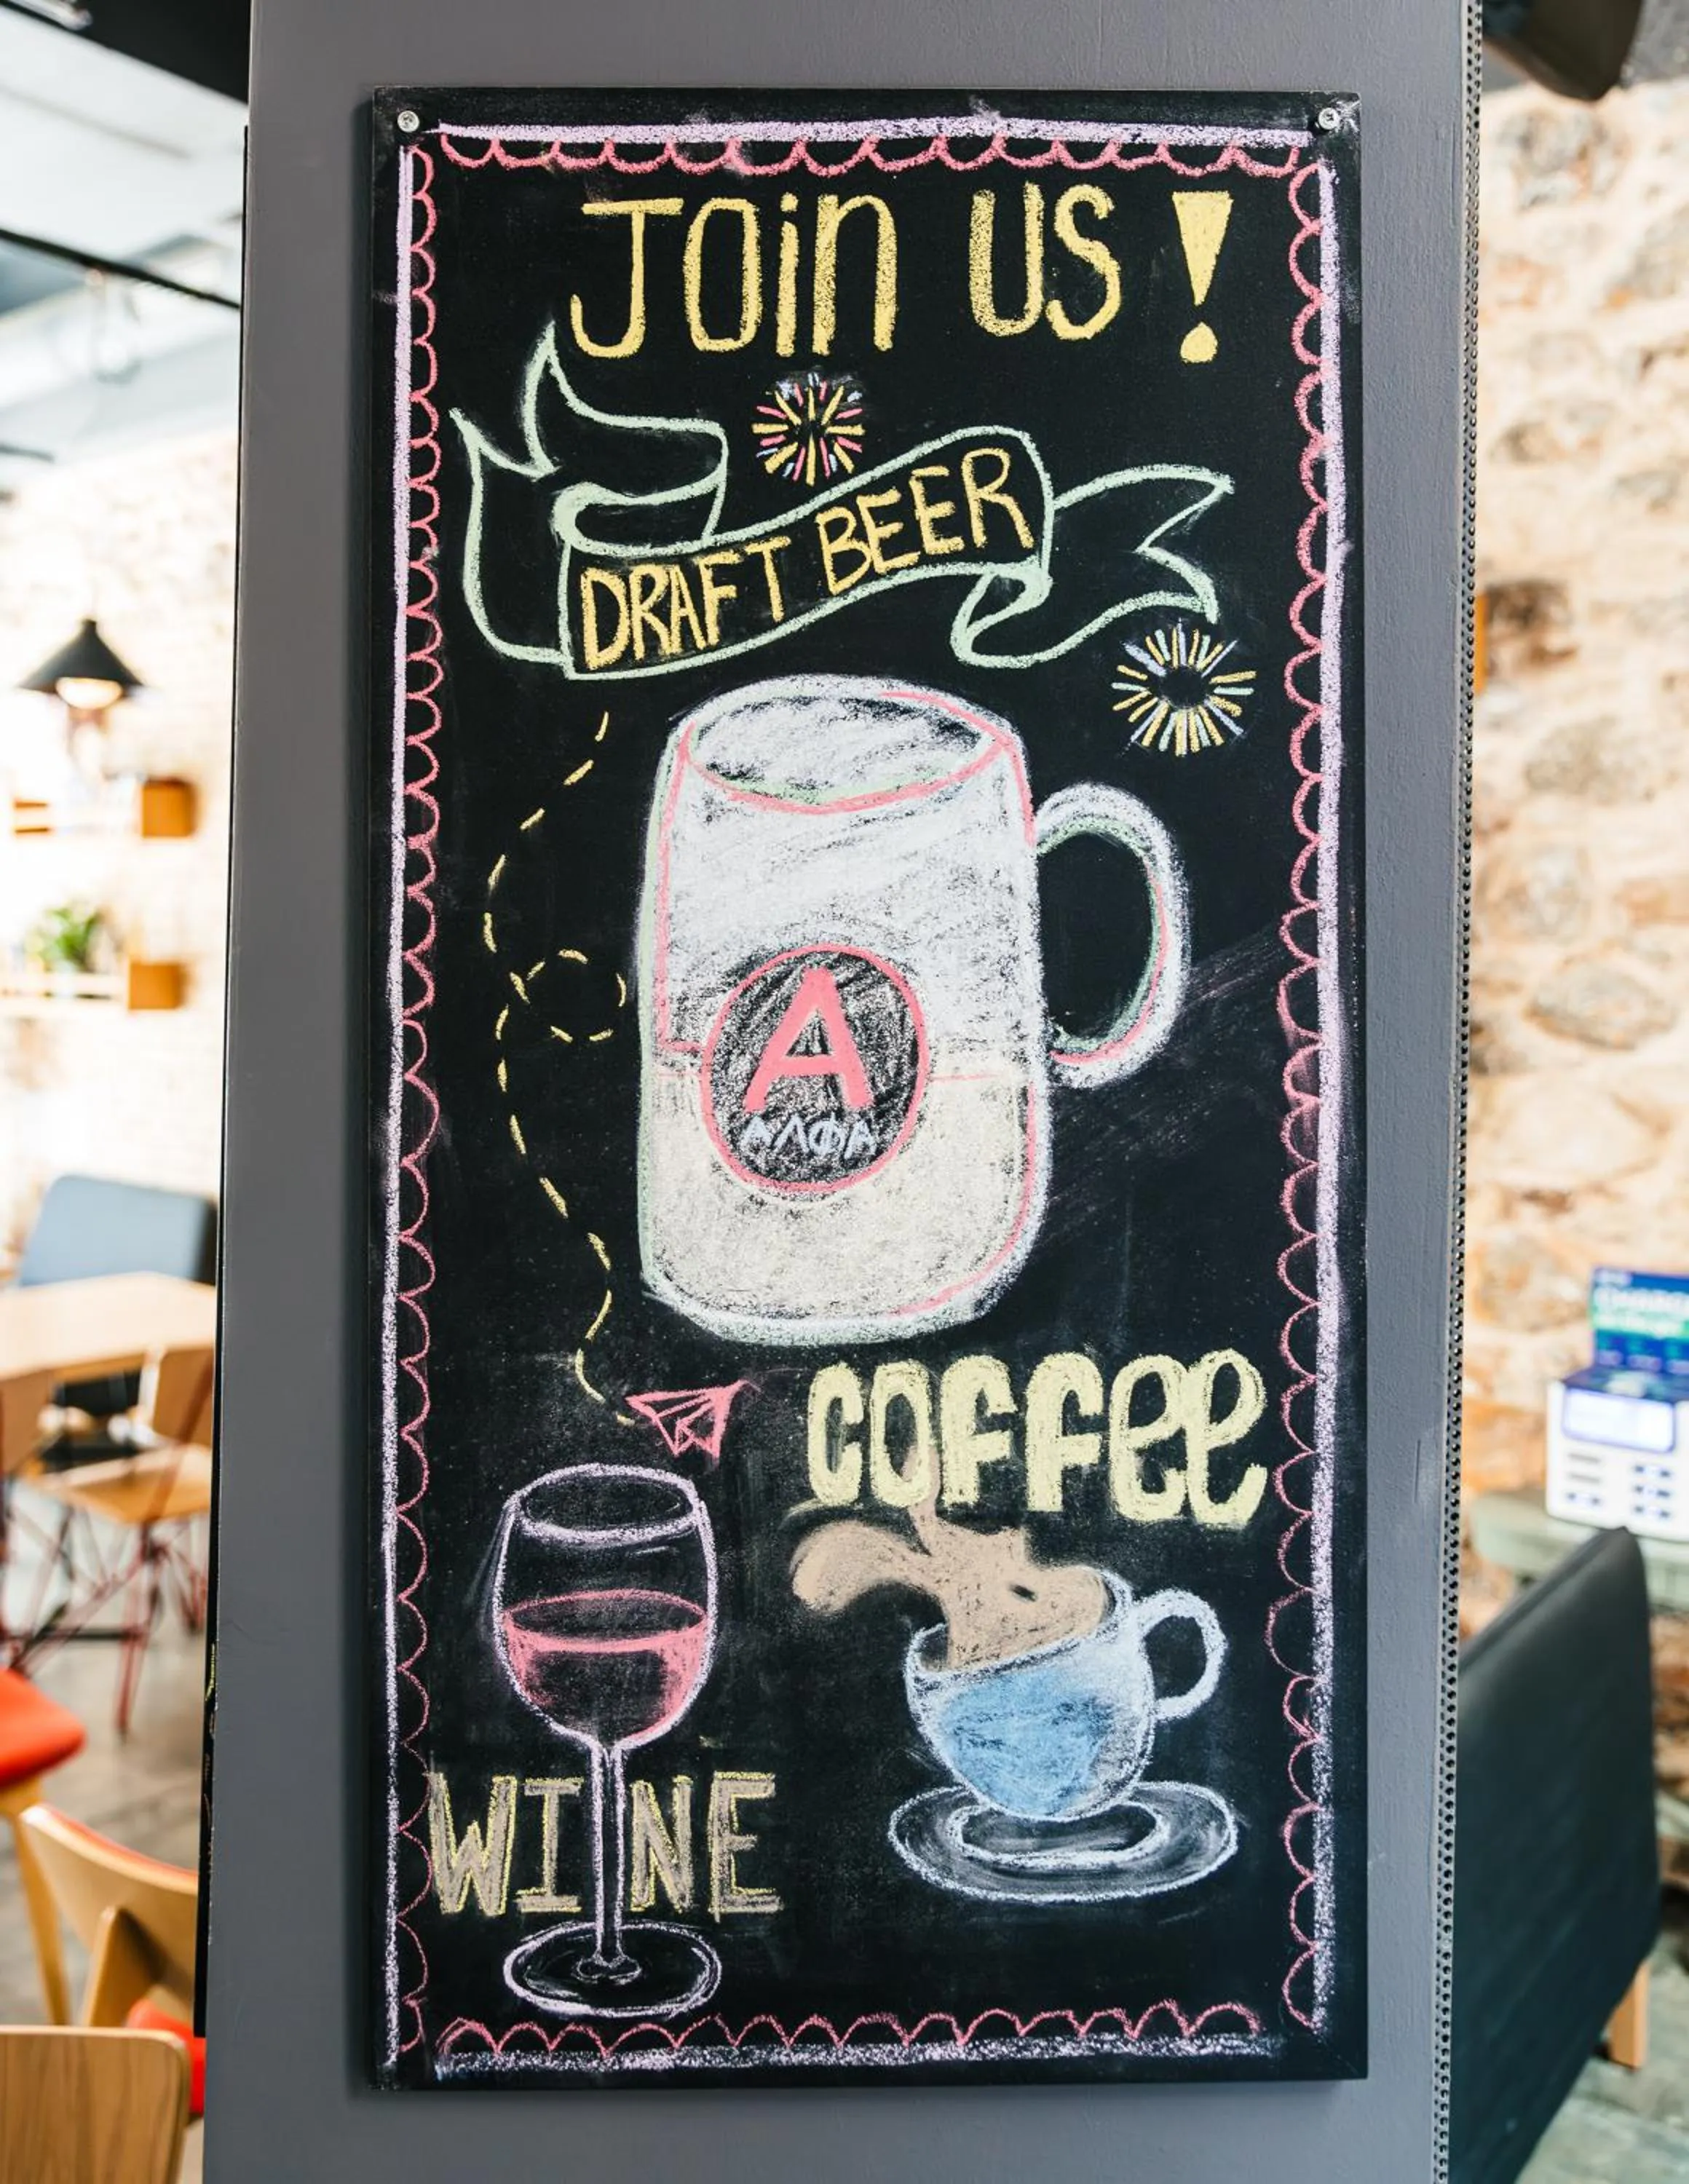 JOiN US !
DRAFT BEER
A
ΑΛΦΑ
COFFee
WINE